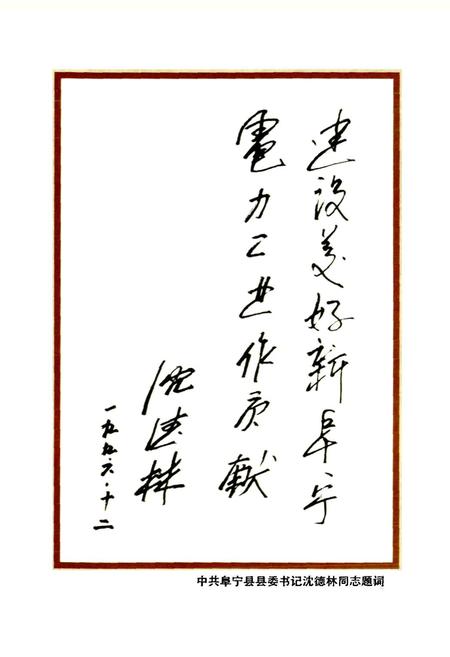 建设美好新阜宁
電力工业作贡献
沈德林
一九九六·十二
中共阜宁县县委书记沈德林同志题词